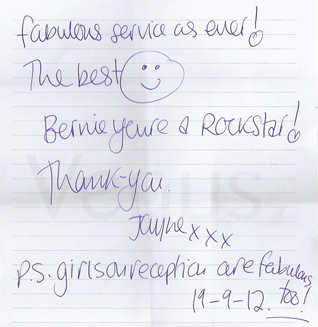 fabulous service as ever!
The best
Bernie you're a Rockstar!
Thank-you.
Jayne xxx
p.s. girls on reception are fabulous
too!
19-9-12.
Venus